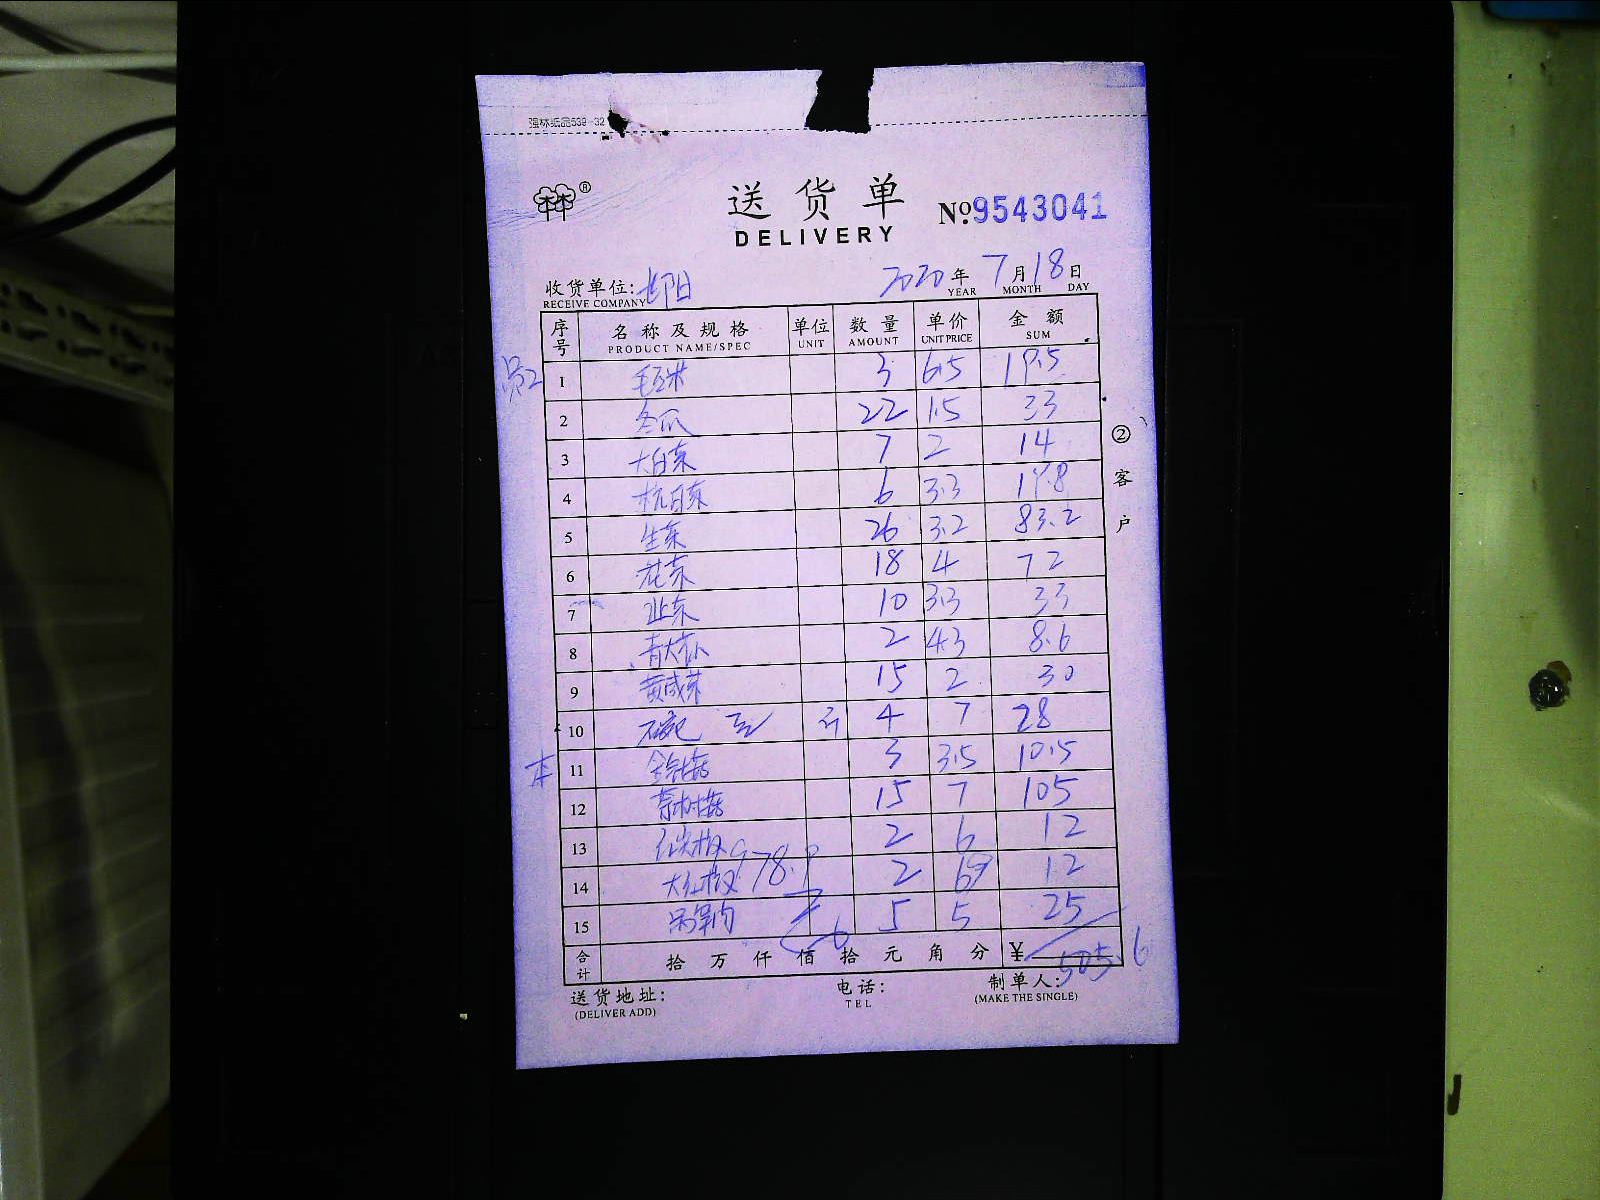 强林纸品539-32
®
送货单
DELIVERY
№9543041
收货单位:
RECEIVE COMPANY
2020年7月18日
YEAR MONTH DAY
序号 名称及规格 单位 数量 单价 金额
PRODUCT NAME/SPEC UNIT AMOUNT UNIT PRICE SUM
1 毛豆米 3 6.5 19.5
2 冬瓜 22 1.5 33
3 大白菜 7 2 14
4 杭白菜 6 3.3 19.8
5 生菜 26 3.2 83.2
6 花菜 18 4 72
7 10 3.3 33
8 2 4.3 8.6
9 黄咸菜 15 2 30
10 4 7 28
本
11 金针菇 3 3.5 10.5
12 茶树菇 15 7 105
13 2 6 12
14 大红椒 2 6 12
978.9
15 5 5 25
合计 拾万仟佰拾元角分 ¥505.6
②客户
送货地址:
(DELIVER ADD)
电话:
TEL
制单人:
(MAKE THE SINGLE)